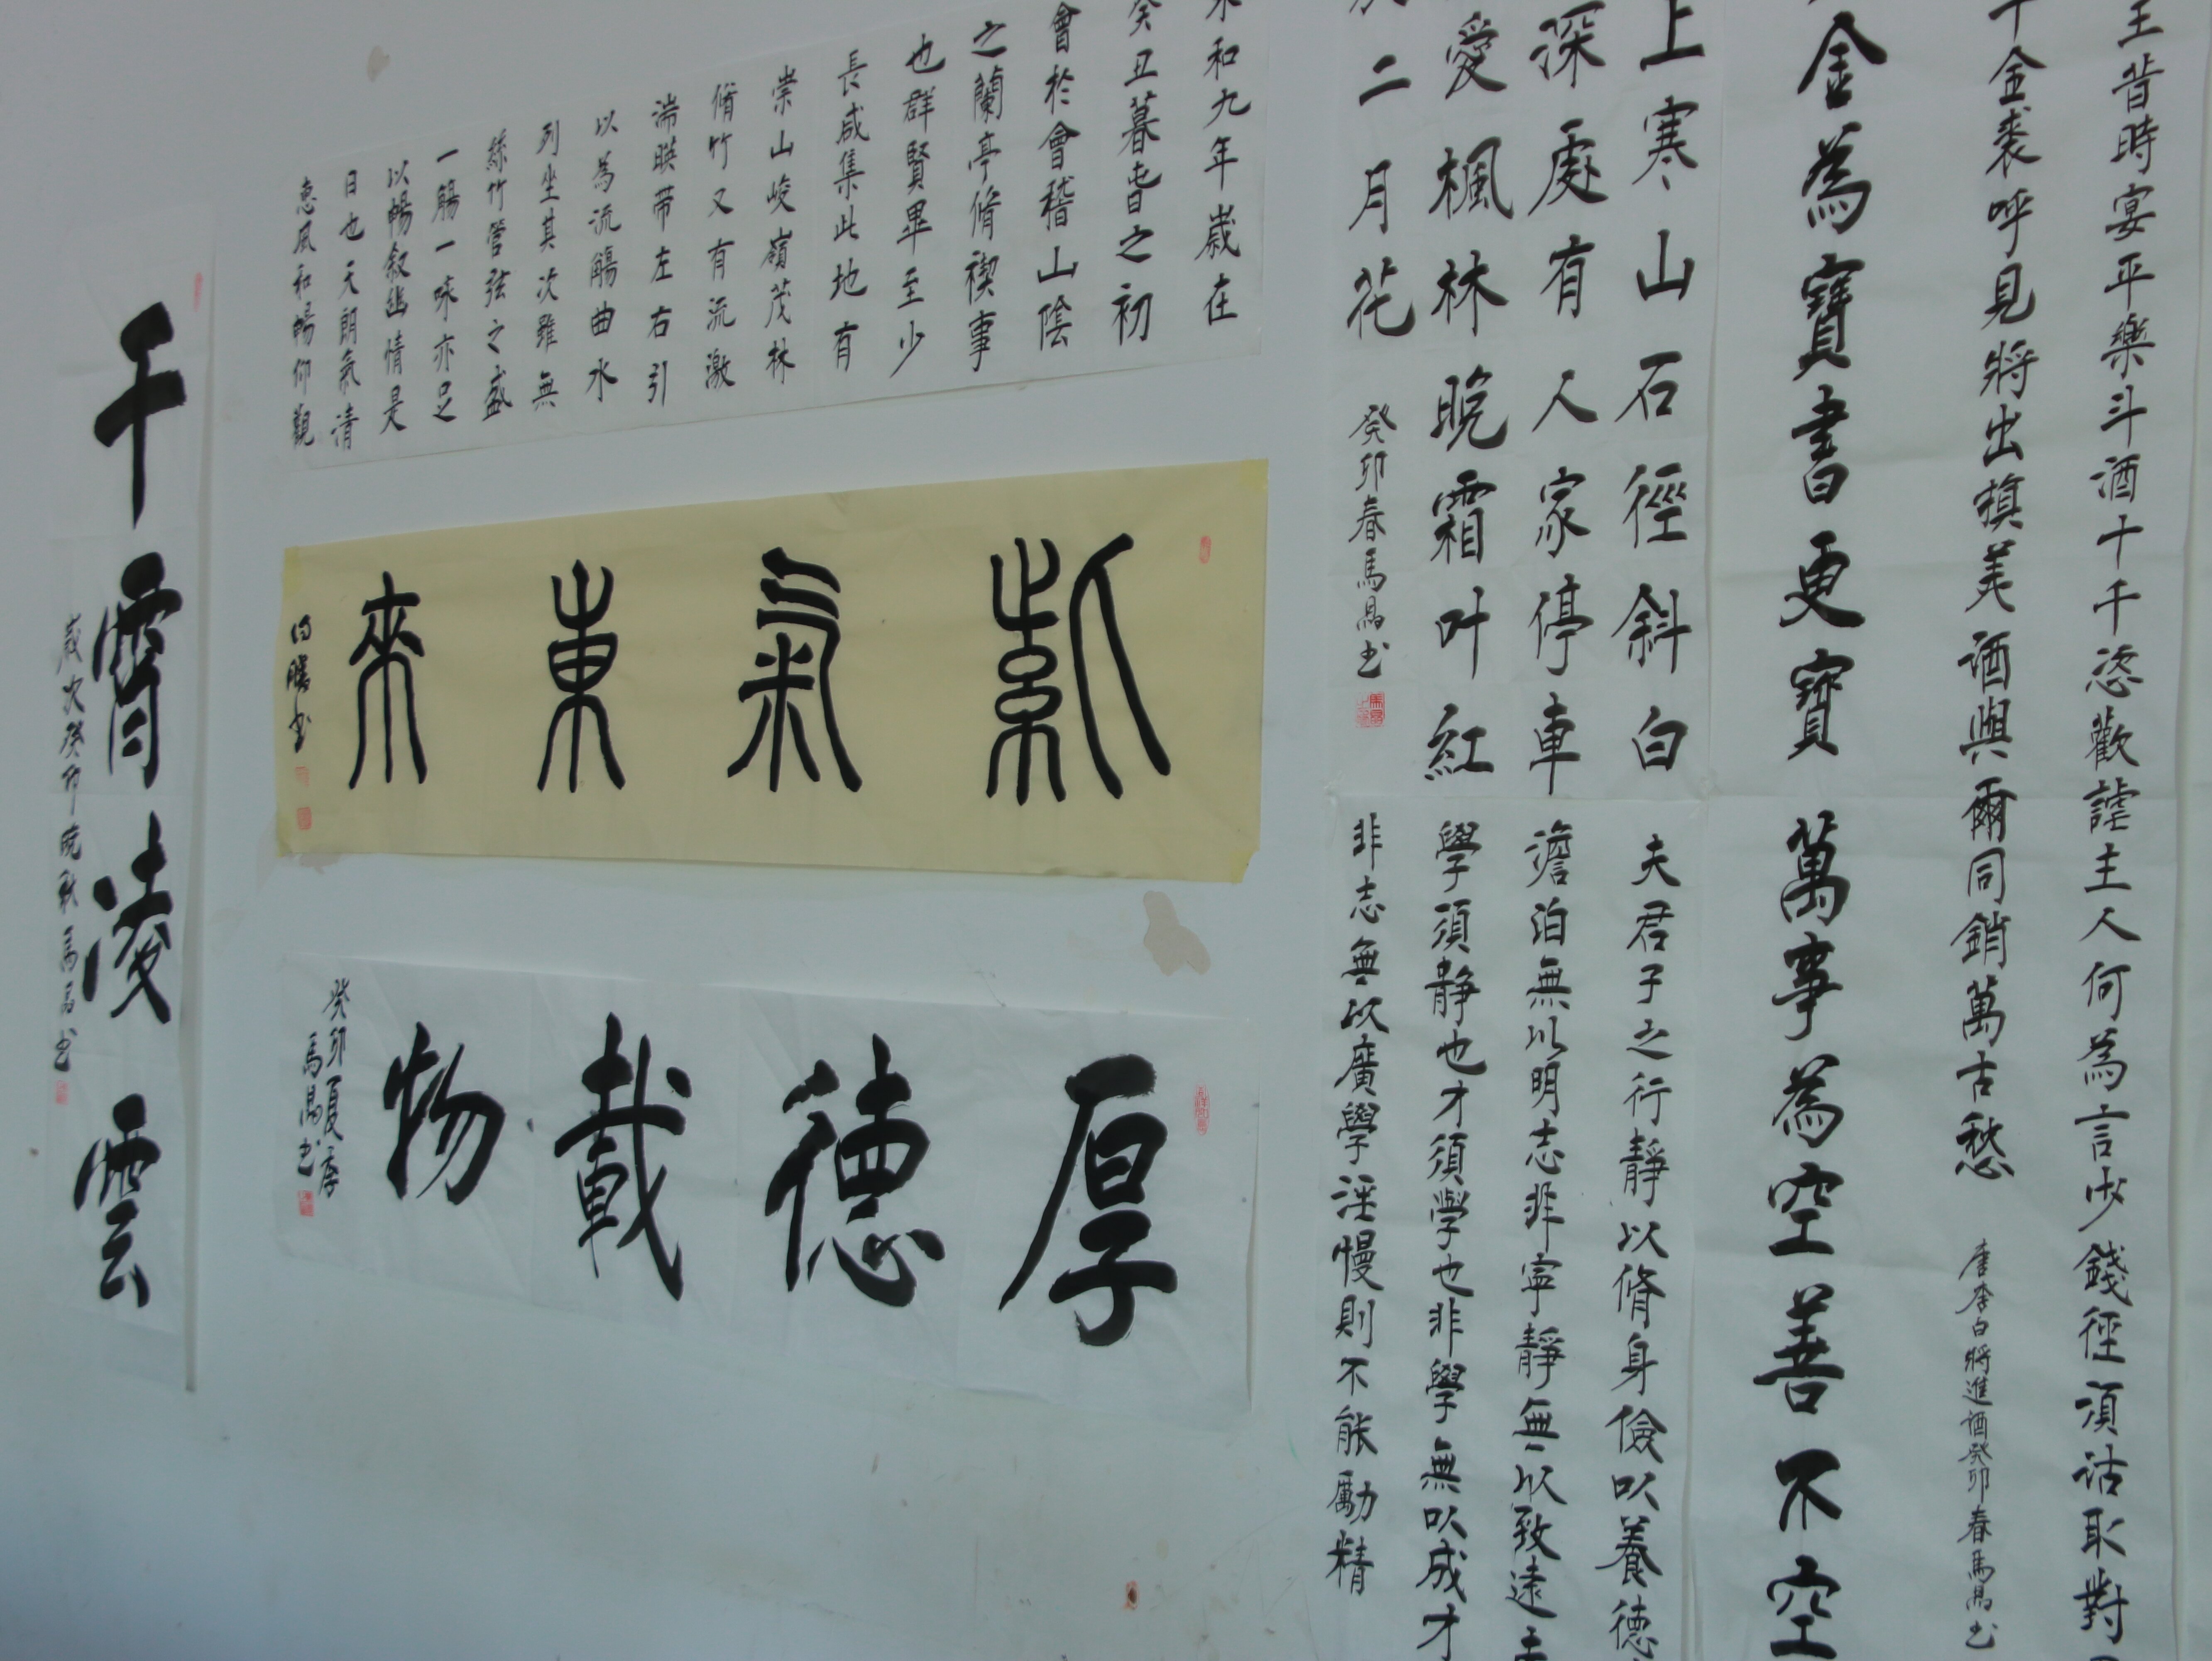 王昔時宴平樂斗酒十千恣歡謔主人何為言少錢徑須沽取對
千金裘呼兒將出換美酒與爾同銷萬古愁
唐李白將進酒癸卯春馬昺书
金為寶書更寶萬事為空善不空
上寒山石徑斜白
深處有人家停車
愛楓林晚霜叶紅
二月花
癸卯春馬昺书
夫君子之行靜以脩身儉以養德
澹泊無以明志非寧靜無以致遠
學須静也才須學也非學無以成才
非志無以廣學淫慢則不能勵精
永和九年歲在
癸丑暮春之初
會於會稽山陰
之蘭亭脩禊事
也群賢畢至少
長咸集此地有
崇山峻嶺茂林
脩竹又有流激
湍暎带左右引
以為流觴曲水
列坐其次雖無
絲竹管弦之盛
一觴一咏亦足
以暢敘幽情是
日也天朗氣清
惠風和暢仰觀
紫氣東來
书
厚德載物
癸卯夏季
馬昺书
干霄凌雲
歲次癸卯晚秋馬昺书